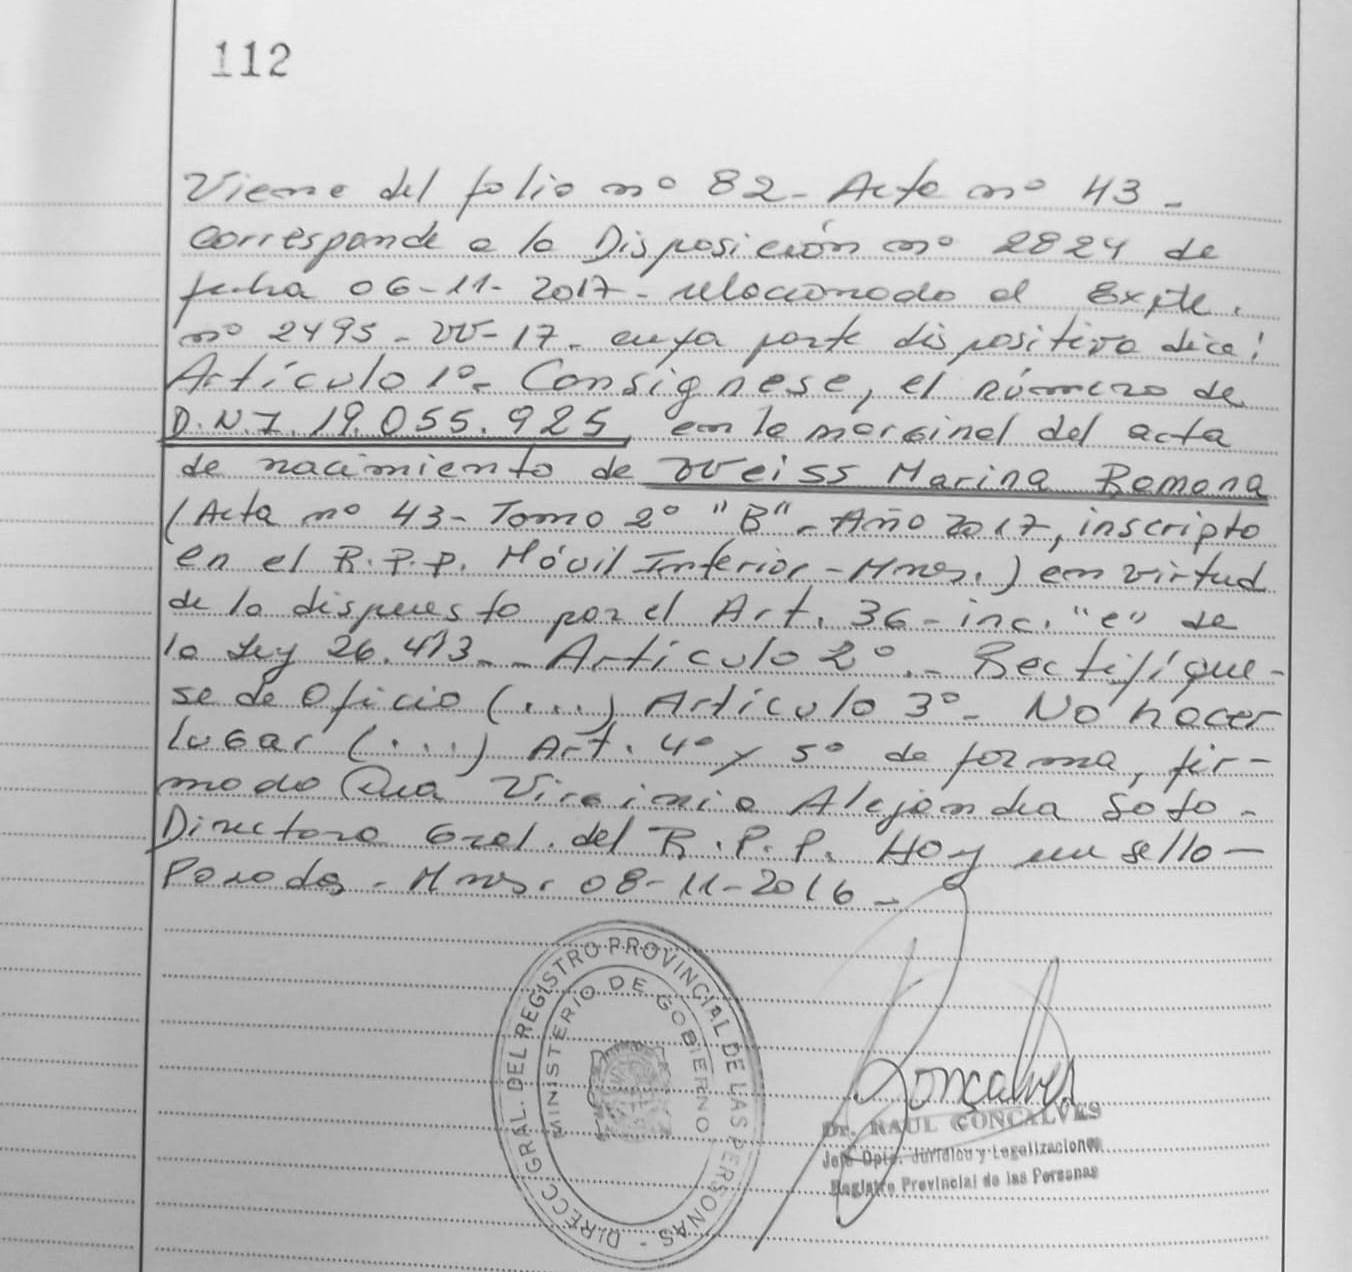 112
Viene del folio nº 82 - Acta nº 43 -
corresponde a la Disposición nº 2824 de
fecha 06-11-2017 - relacionado al Expte.
nº 2495 - W-17 - cuya parte dispositiva dice:
Artículo 1º- Consígnese, el número de
D.N.I. 19.055.925 en la marginal del acta
de nacimiento de Weiss Marina Romona
(Acta nº 43 - Tomo 2º "B" - Año 2017, inscripto
en el R.P.P. Móvil Inferior - Mnes.) en virtud
de lo dispuesto por el Art. 36 - inc. "e" de
la Ley 26.413 - Artículo 2º - Rectifíque-
se de Oficio (...) Artículo 3º - No hacer
lugar (...) Art. 4º y 5º de forma, fir-
mado Dra Virginia Alejandra Soto -
Directora Gral. del R.P.P. Hoy un sello -
Posadas - Mnes. 08-11-2016 -
DIRECC. GRAL. DEL REGISTRO PROVINCIAL DE LAS PERSONAS -
MINISTERIO DE GOBIERNO
Gonçalves
Dr. RAUL GONCALVES
Jefe Dpto. Jurídico y Legalizaciones
Registro Provincial de las Personas